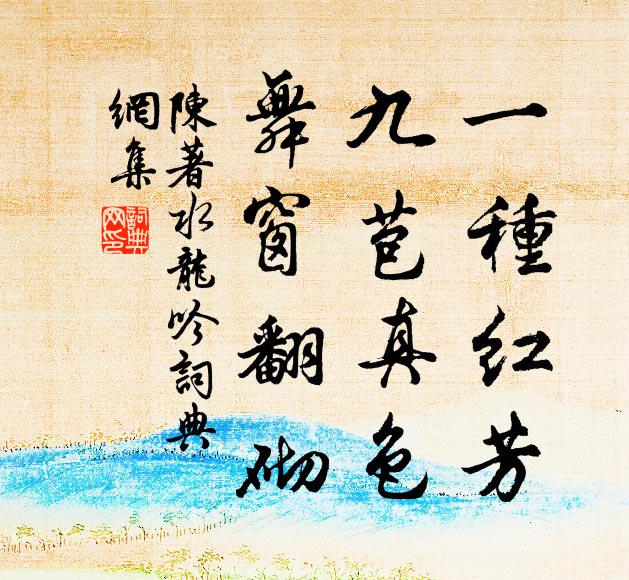 一種紅芳
九苞真色
舞窗翻砌
陳著水龍吟詞典
網集
詞典
网印